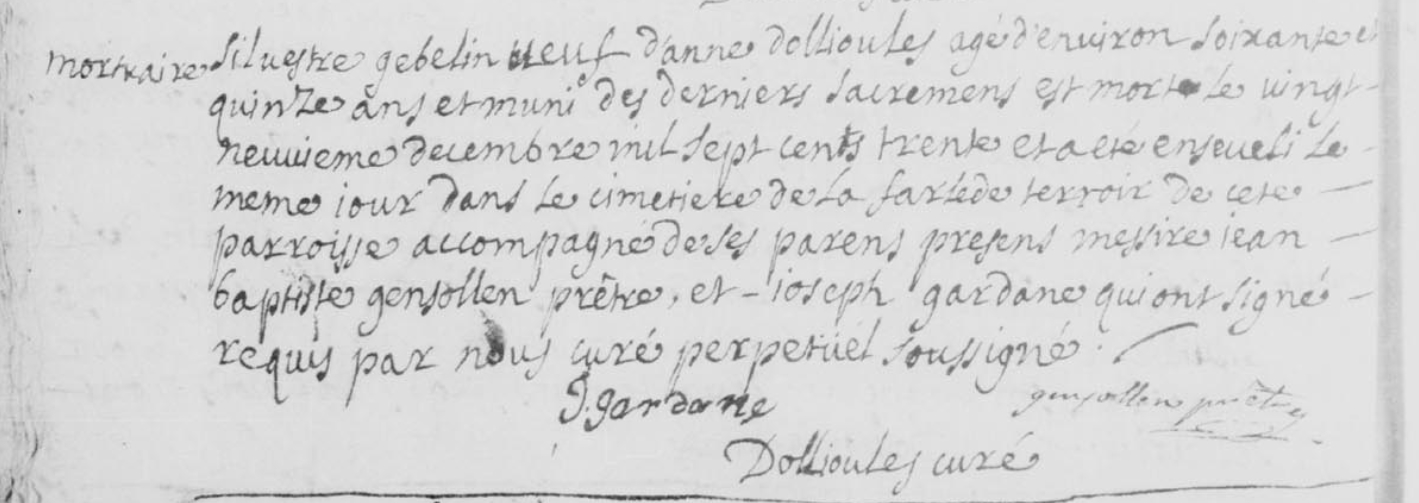 mortuaire
Silvestre gebelin veuf d'anne dollioules agé d'environ soixante et
quinze ans et muni des derniers sacremens est mort le vingt-
neuvieme decembre mil sept cents trente et a eté enseveli le
meme iour dans le cimetiere de la farlede terroir de cete
parroisse accompagné de ses parens presens messire iean
baptiste gensollen prêtre, et ioseph gardane qui ont signé
requis par nous curé perpetüel soussigné.
J. gardane
gensollen prêtre
Dollioules curé